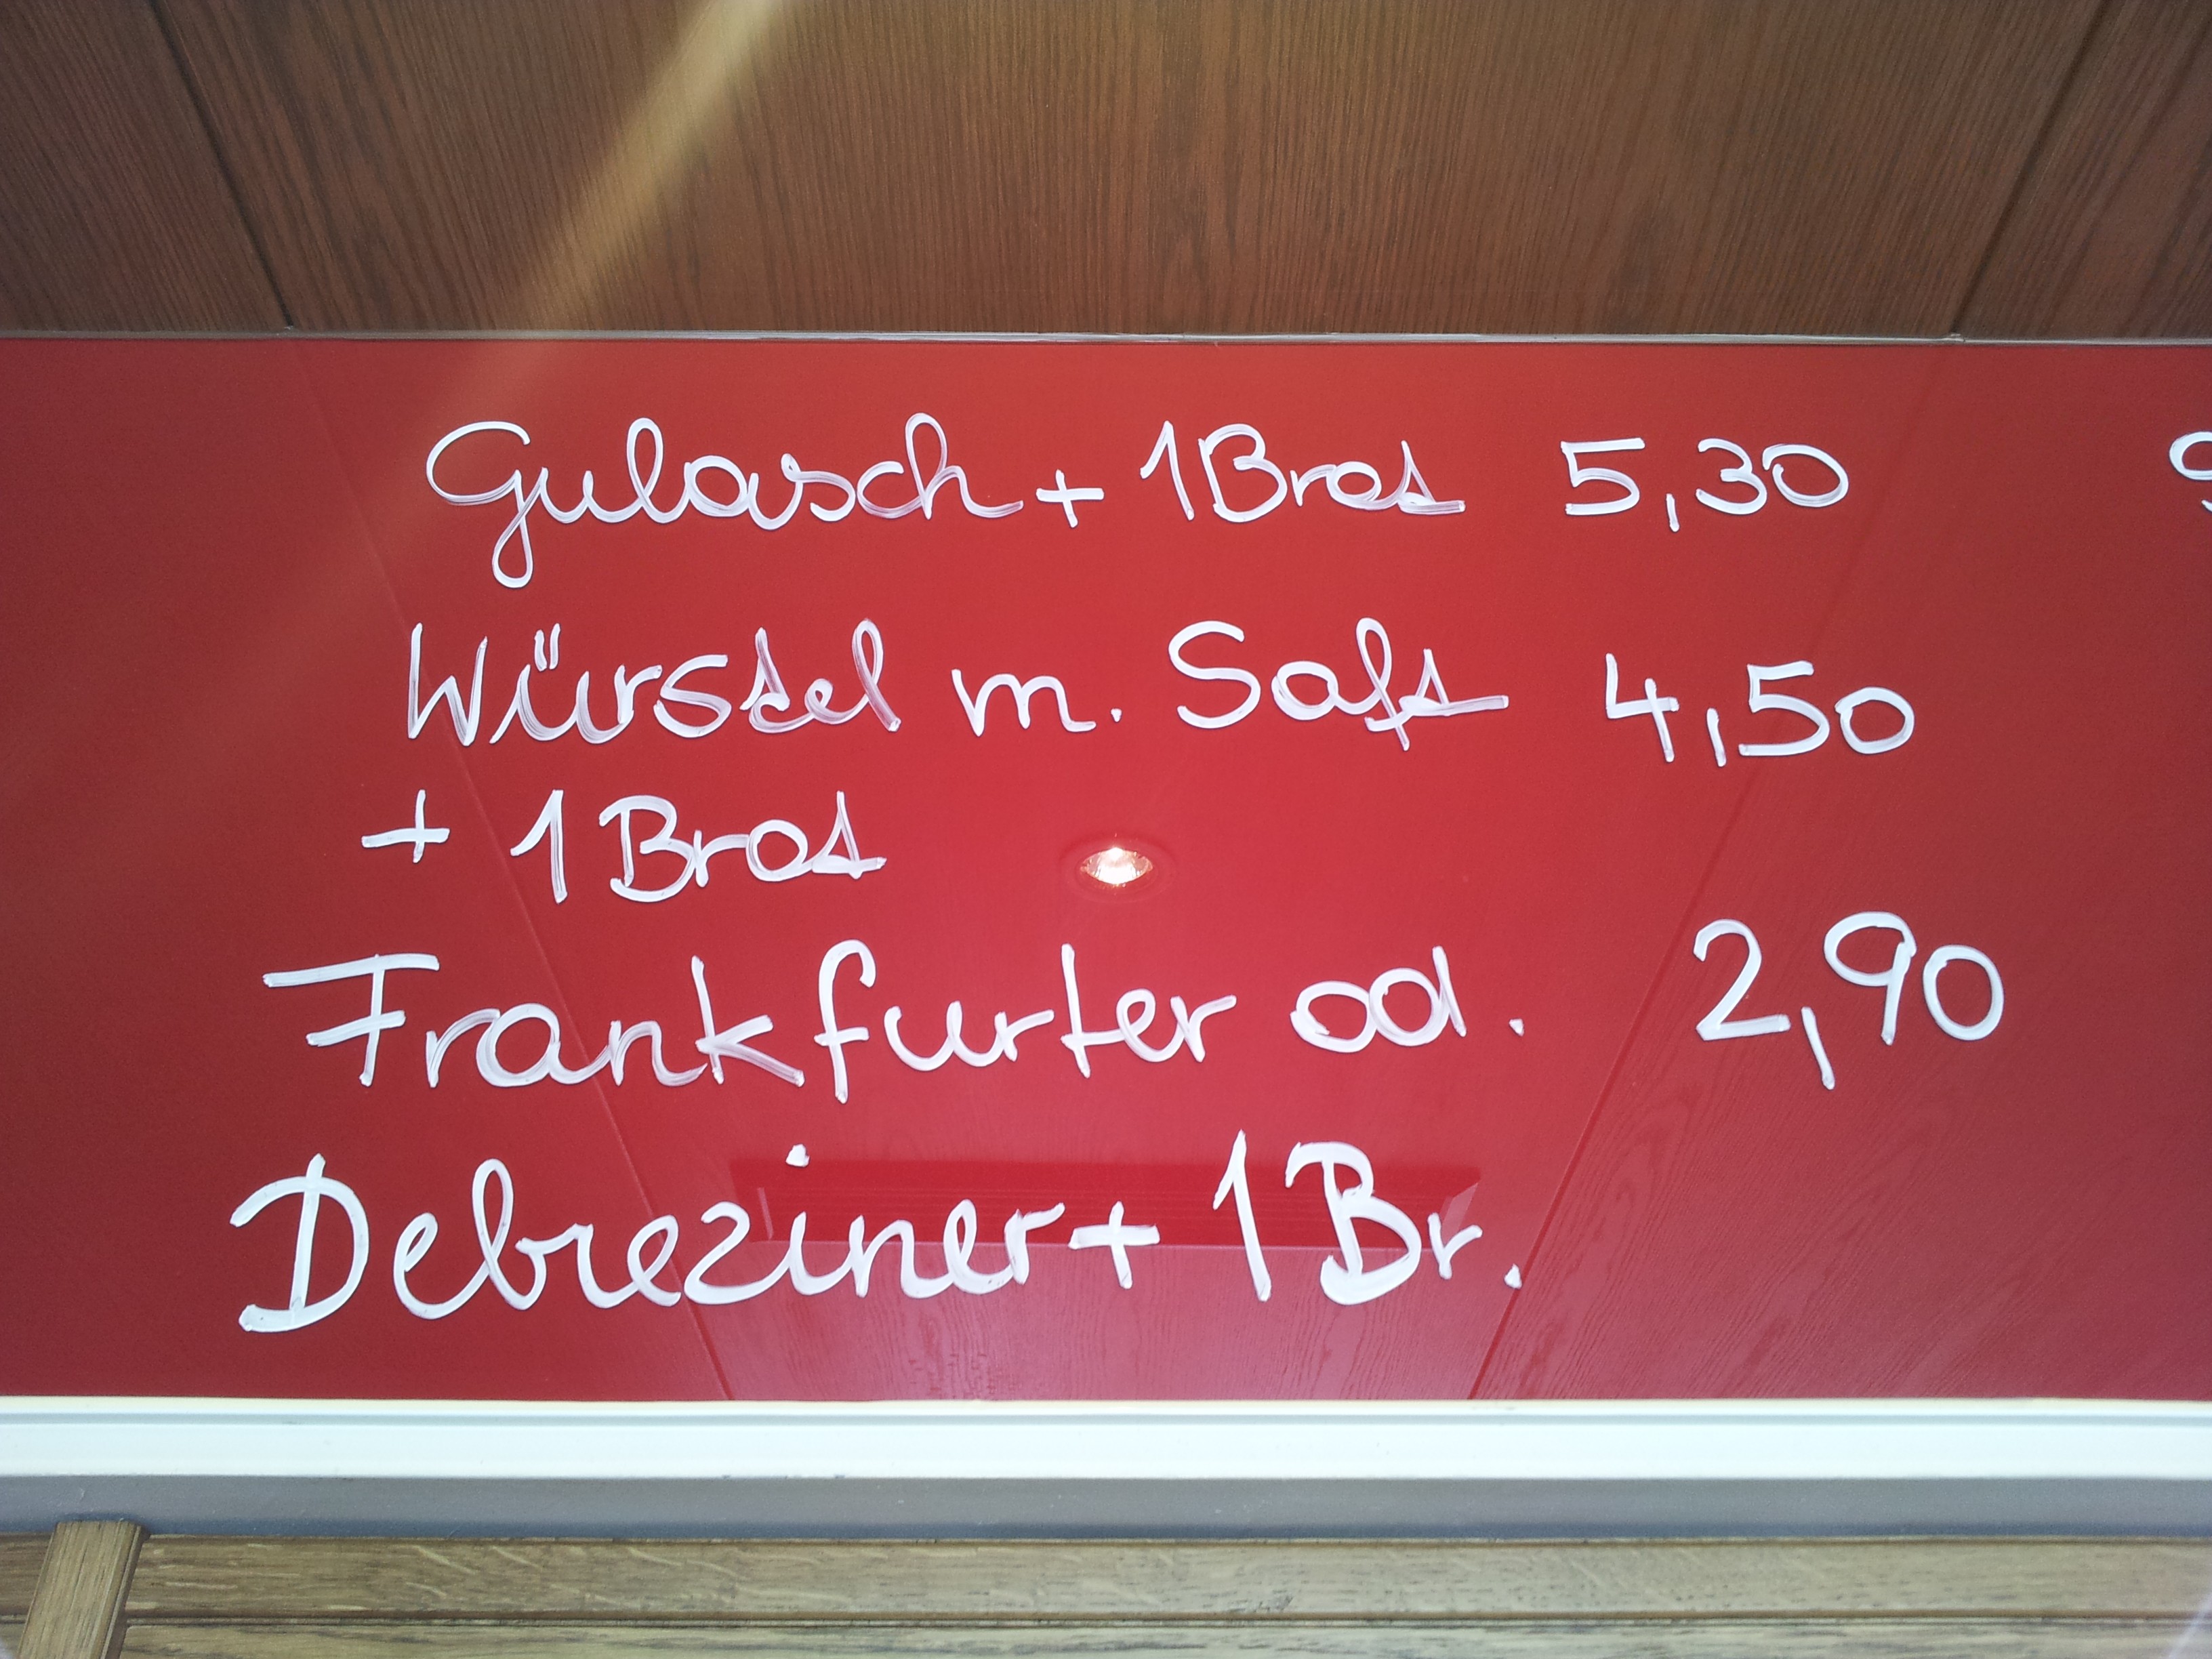 Gulasch + 1 Brot 5,30
Würstel m. Saft 4,50
+ 1 Brot
Frankfurter od. 2,90
Debreziner + 1 Br.